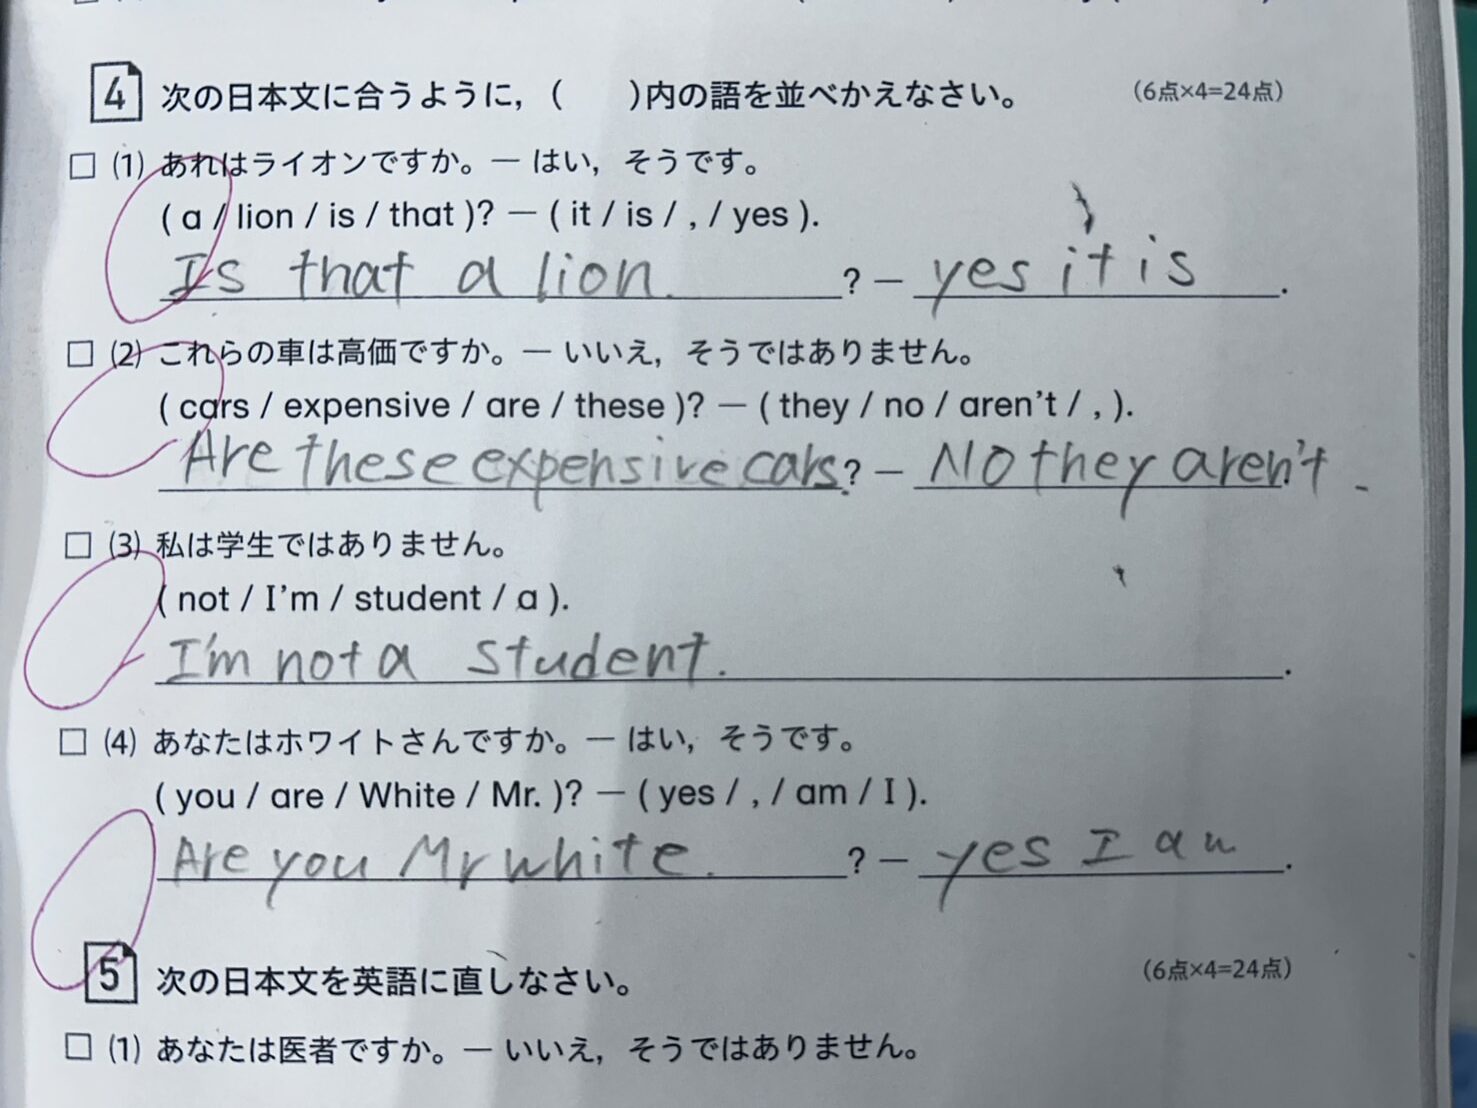 4 次の日本文に合うように，(　　)内の語を並べかえなさい。 (6点×4=24点)
□ (1) あれはライオンですか。— はい，そうです。
( a / lion / is / that )? — ( it / is / , / yes ).
Is that a lion. ? — yes it is .
□ (2) これらの車は高価ですか。— いいえ，そうではありません。
( cars / expensive / are / these )? — ( they / no / aren't / , ).
Are these expensive cars. ? — No they aren't .
□ (3) 私は学生ではありません。
( not / I'm / student / a ).
I'm not a student. .
□ (4) あなたはホワイトさんですか。— はい，そうです。
( you / are / White / Mr. )? — ( yes / , / am / I ).
Are you Mr white. ? — yes I am .
5 次の日本文を英語に直しなさい。 (6点×4=24点)
□ (1) あなたは医者ですか。— いいえ，そうではありません。